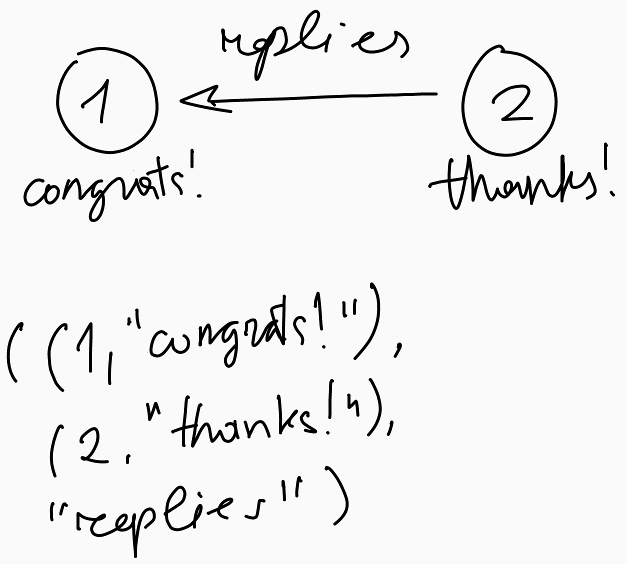 replies
1
2
congrats!
thanks!
((1, "congrats!"),
(2, "thanks!"),
"replies")